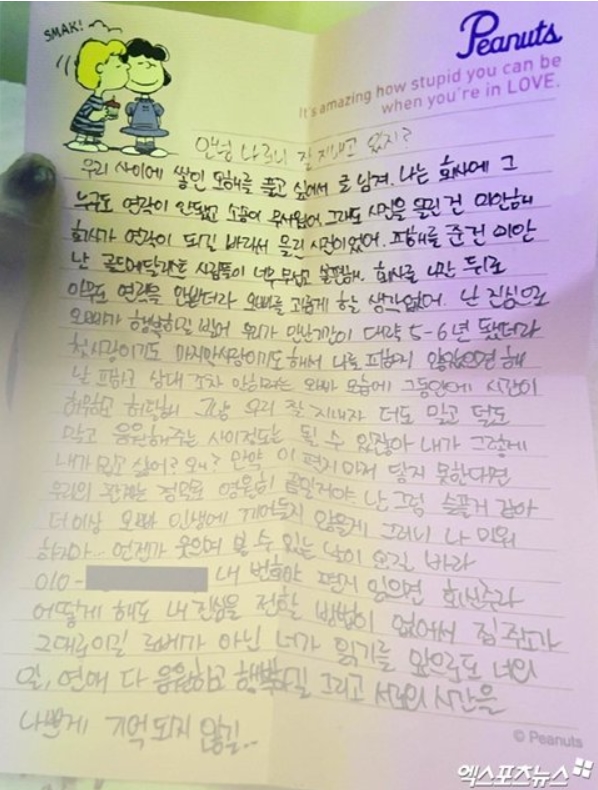 SMAK!
Peanuts
It's amazing how stupid you can be
when you're in LOVE.
안녕 나름 잘 지내고 있지?
우리 사이에 쌓인 오해를 풀고 싶어서 글 남겨. 나는 회사에 그
누구도 연락이 안됐고 소송이 무서웠어 그래도 사진을 올린 건 미안해
회사가 연락이 되길 바라서 올린 사진이었어. 피해를 준건 미안
난 골드메달리스트 사람들이 너무 무섭고 불편해. 회사를 나간 뒤로
아무도 연락을 안받더라 오빠를 괴롭게 할 생각 없어. 난 진심으로
오빠가 행복하길 빌어 우리가 만난기간이 대략 5-6년 됐더라
첫사랑이기도 마지막사랑이기도해서 나를 피하지 않았으면 해
날 피하고 상대 조차 안하려는 오빠 모습에 그동안에 시간이
허무하고 허탈해 그냥 우리 잘 지내자 더도 말고 덜도
말고 응원해주는 사이정도는 될 수 있잖아 내가 그렇게
내가 밉고 싫어? 왜? 만약 이 편지마저 닿지 못한다면
우리의 관계는 정말로 영원히 끝일거야. 난 그럼 슬플거 같아
더이상 오빠 인생에 끼어들지 않을게 그러니 나 미워
하지마.. 언젠가 웃으며 볼 수 있는 날이 오길 바라
010- 내 번호야 편지 읽으면 회신준라
어떻게 해도 내 진심을 전할 방법이 없어서 집주소가
그대로이길 로베가 아닌 너가 읽기를 앞으로도 너의
일, 연애 다 응원하고 행복하길 그리고 서로의 시간을
나쁘게 기억되지 않길..
© Peanuts
엑스포츠뉴스